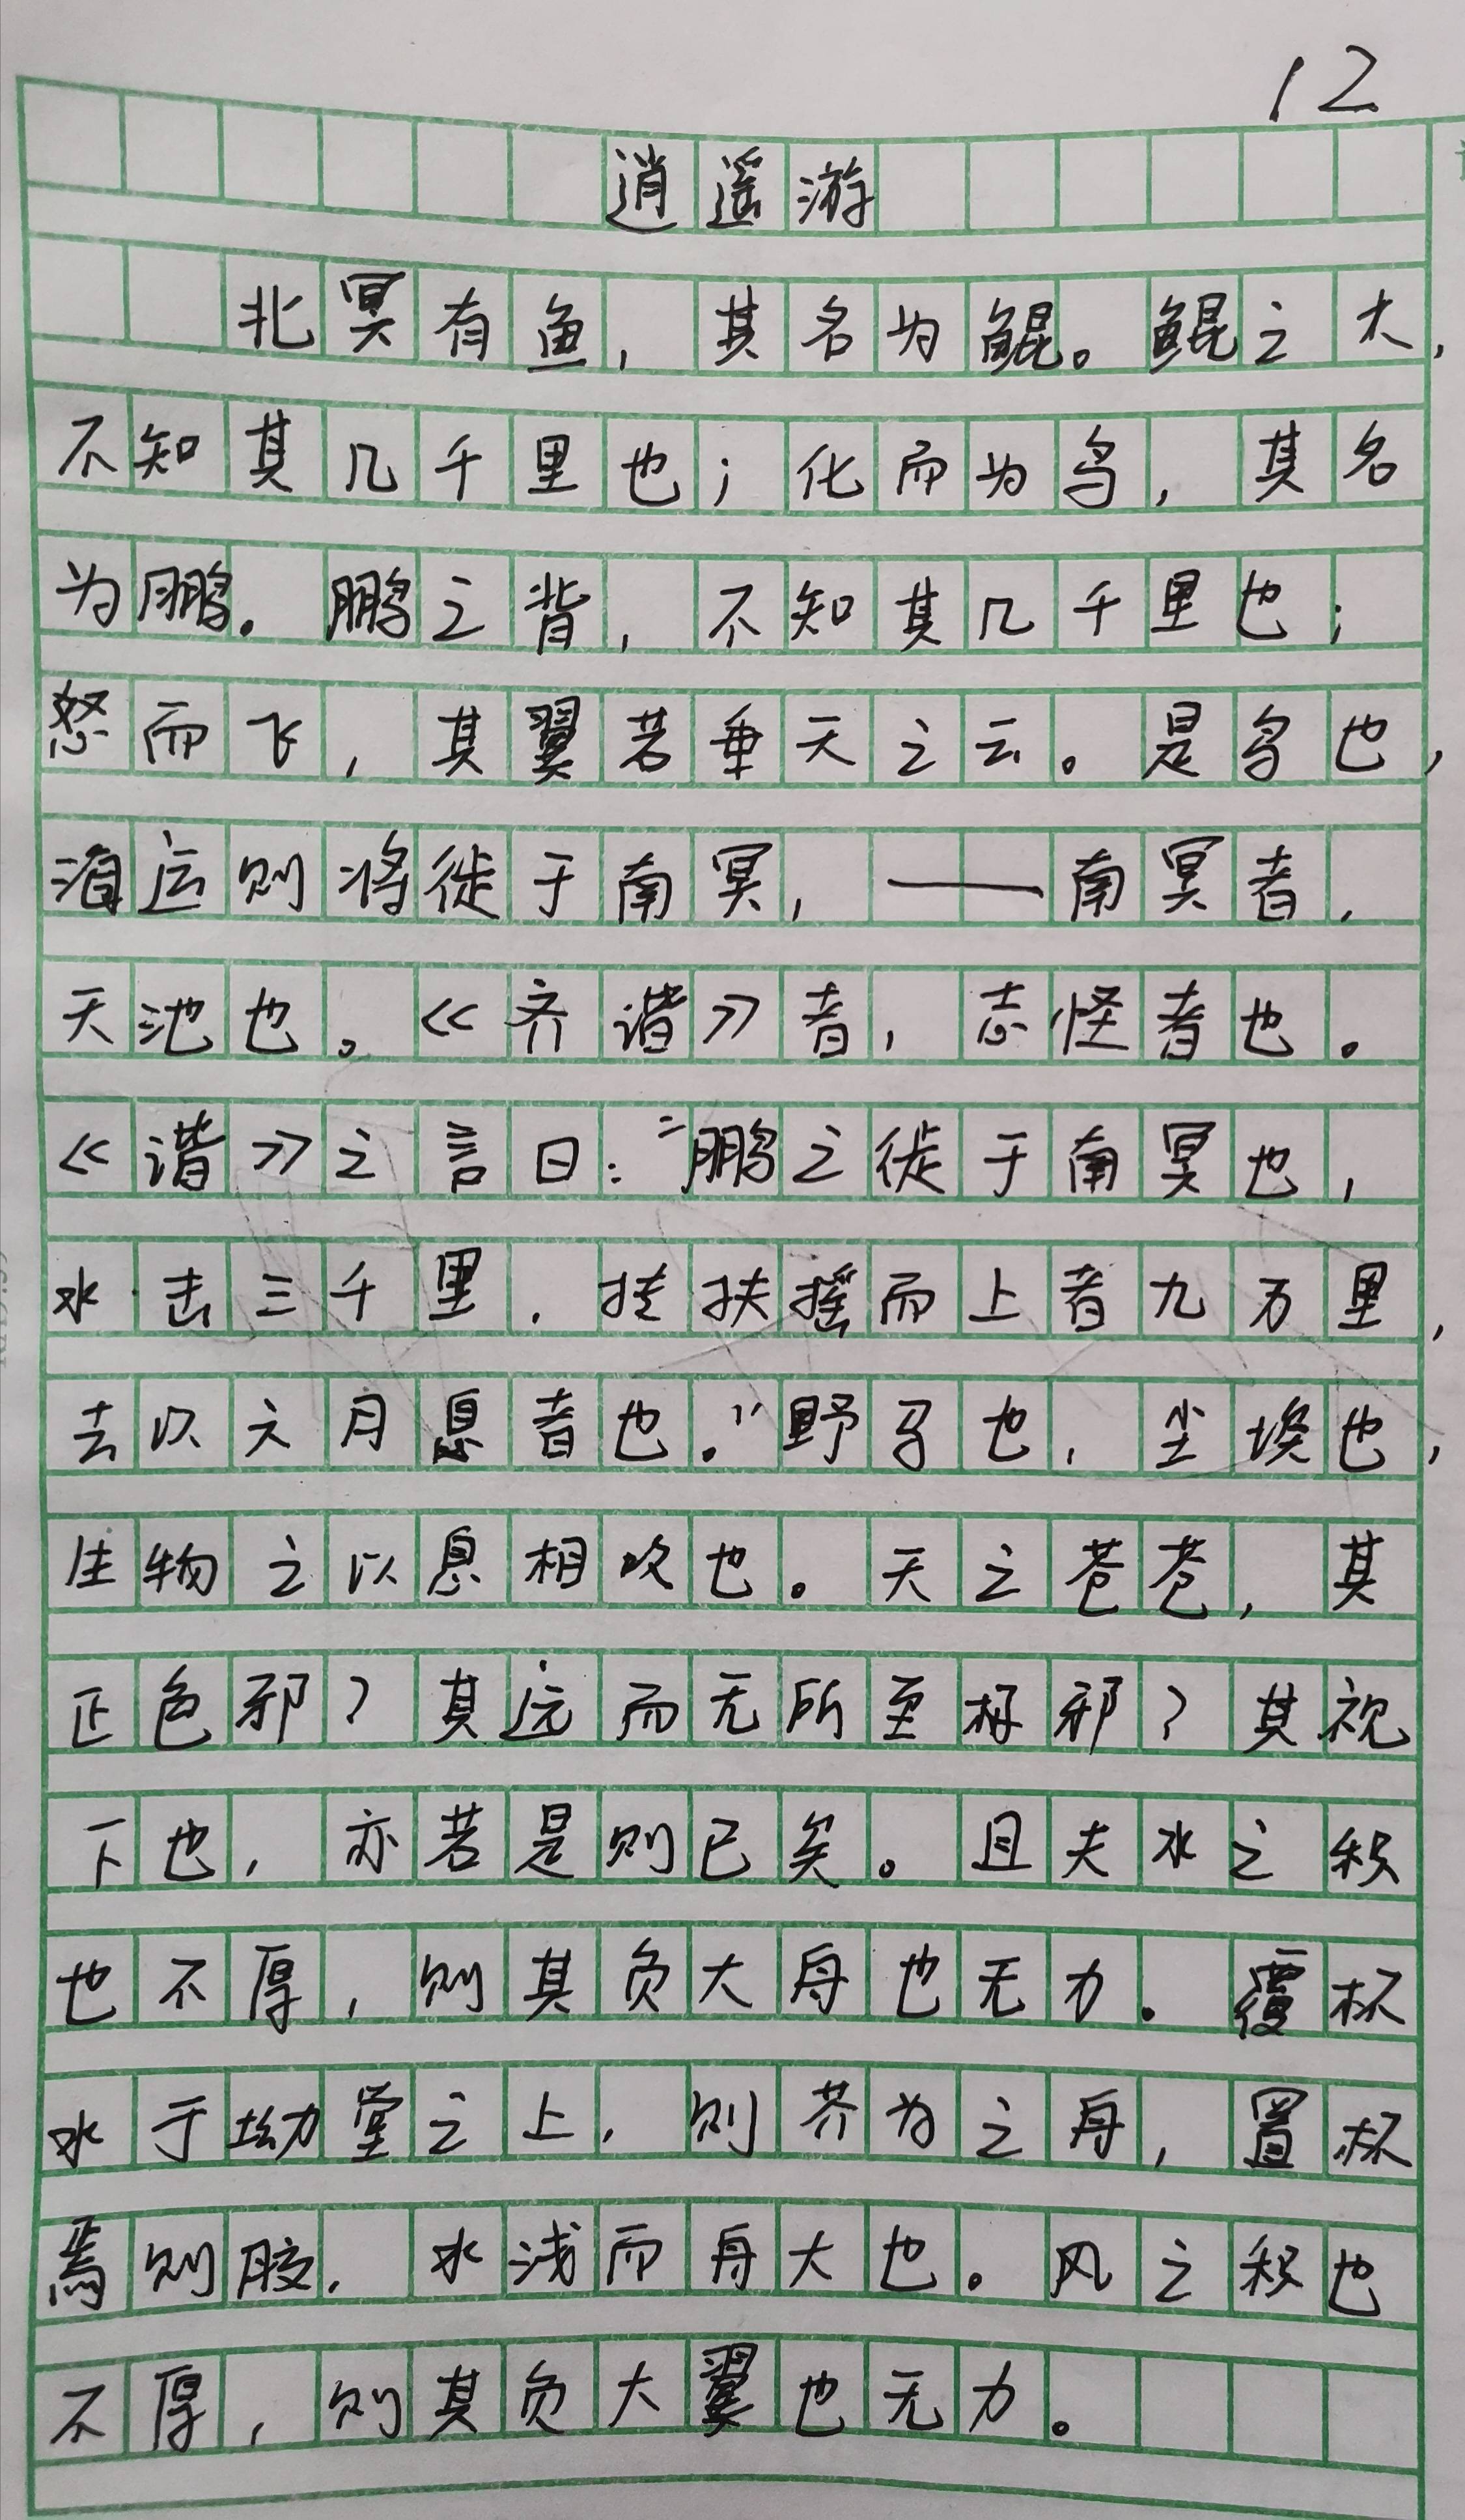 12
逍遥游
北冥有鱼，其名为鲲。鲲之大，
不知其几千里也；化而为鸟，其名
为鹏。鹏之背，不知其几千里也；
怒而飞，其翼若垂天之云。是鸟也，
海运则将徙于南冥，——南冥者，
天池也。《齐谐》者，志怪者也。
《谐》之言曰：“鹏之徙于南冥也，
水击三千里．抟扶摇而上者九万里，
去以六月息者也．”野马也，尘埃也，
生物之以息相吹也。天之苍苍，其
正色邪？其远而无所至极邪？其视
下也，亦若是则已矣。且夫水之积
也不厚，则其负大舟也无力．覆杯
水于坳堂之上，则芥为之舟，置杯
焉则胶，水浅而舟大也。风之积也
不厚，则其负大翼也无力。